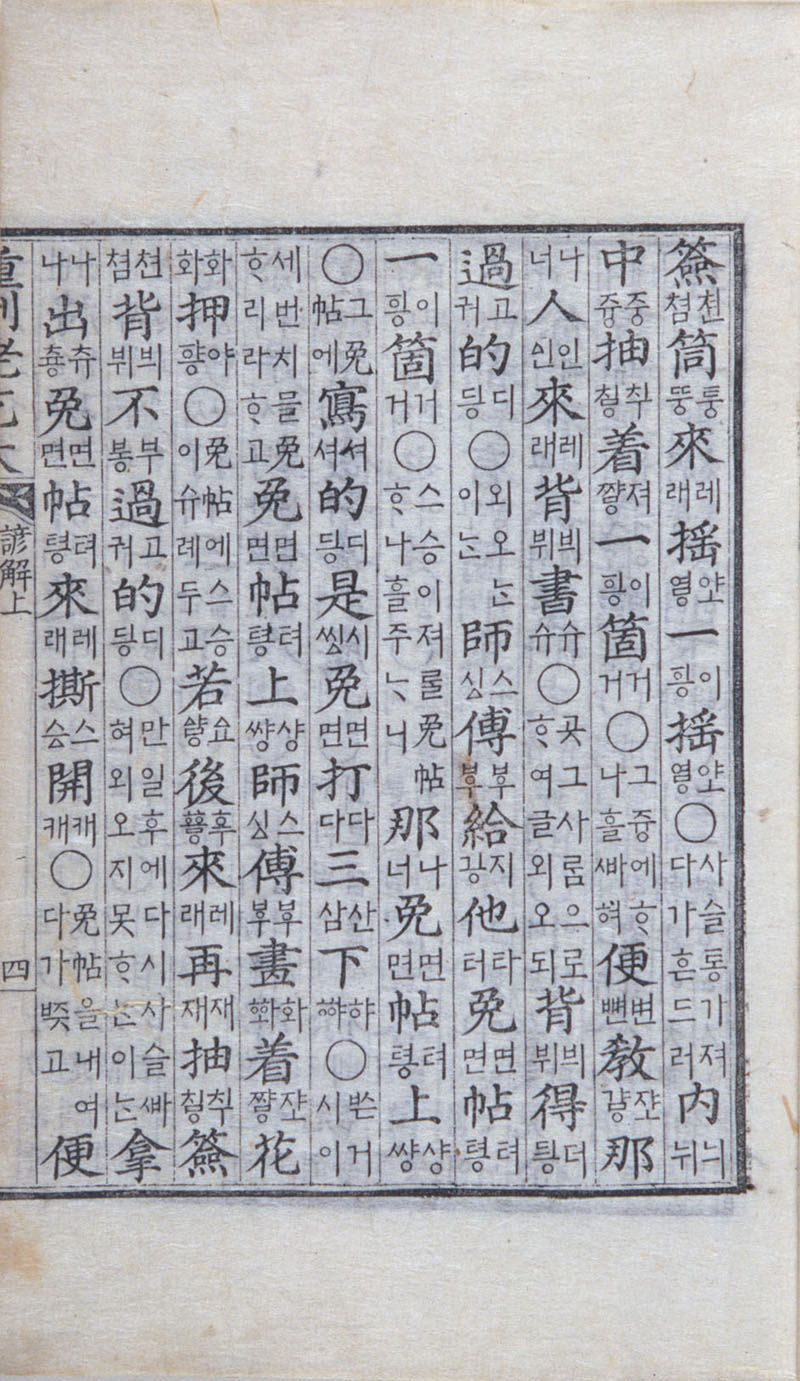 簽천쳠筒퉁뚱來레래搖一이搖○사슬통가져다가흔드러內늬뉘
中즁쥼抽着져一이箇거거○그즁에ᄒᆞ나흘ᄲᅡ혀便변뼌敎那
나너人인來레래背븨뷔書슈슈○곳그사ᄅᆞᆷ으로ᄒᆞ여글외오되背븨뷔得더
過고궈的디○외오ᄂᆞᆫ이ᄂᆞᆫ師스傅부給지他타터免면면帖텨
一이箇거거○스승이져ᄅᆞᆯ免帖ᄒᆞ나흘주ᄂᆞ니那나너免면면帖텨上샹쌍
○그免帖에寫셔셔的디是시免면면打다다三산삼下햐ᅘᅣ○ᄡᅳᆫ거시이
세번치믈免ᄒᆞ리라ᄒᆞ고免면면帖텨上샹쌍師스傅부畫화ᅘᅪ着花
화화押야○免帖에스승이슈례두고若後來레래再재재抽簽
천쳠背븨뷔不부過고궈的디○만일후에다시사슬ᄲᅡ혀외오지못ᄒᆞᄂᆞᆫ이ᄂᆞᆫ拿
나나出츄免면면帖텨來레래撕스開캐캐○免帖을내여다가ᄧᅳᆺ고便
重刊老乞大 諺解上 四